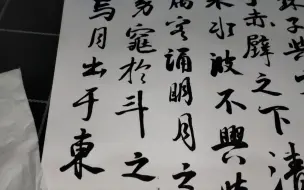 子與
于赤壁之下清
來水波不興
客誦明月之
於斗之
焉月出于東